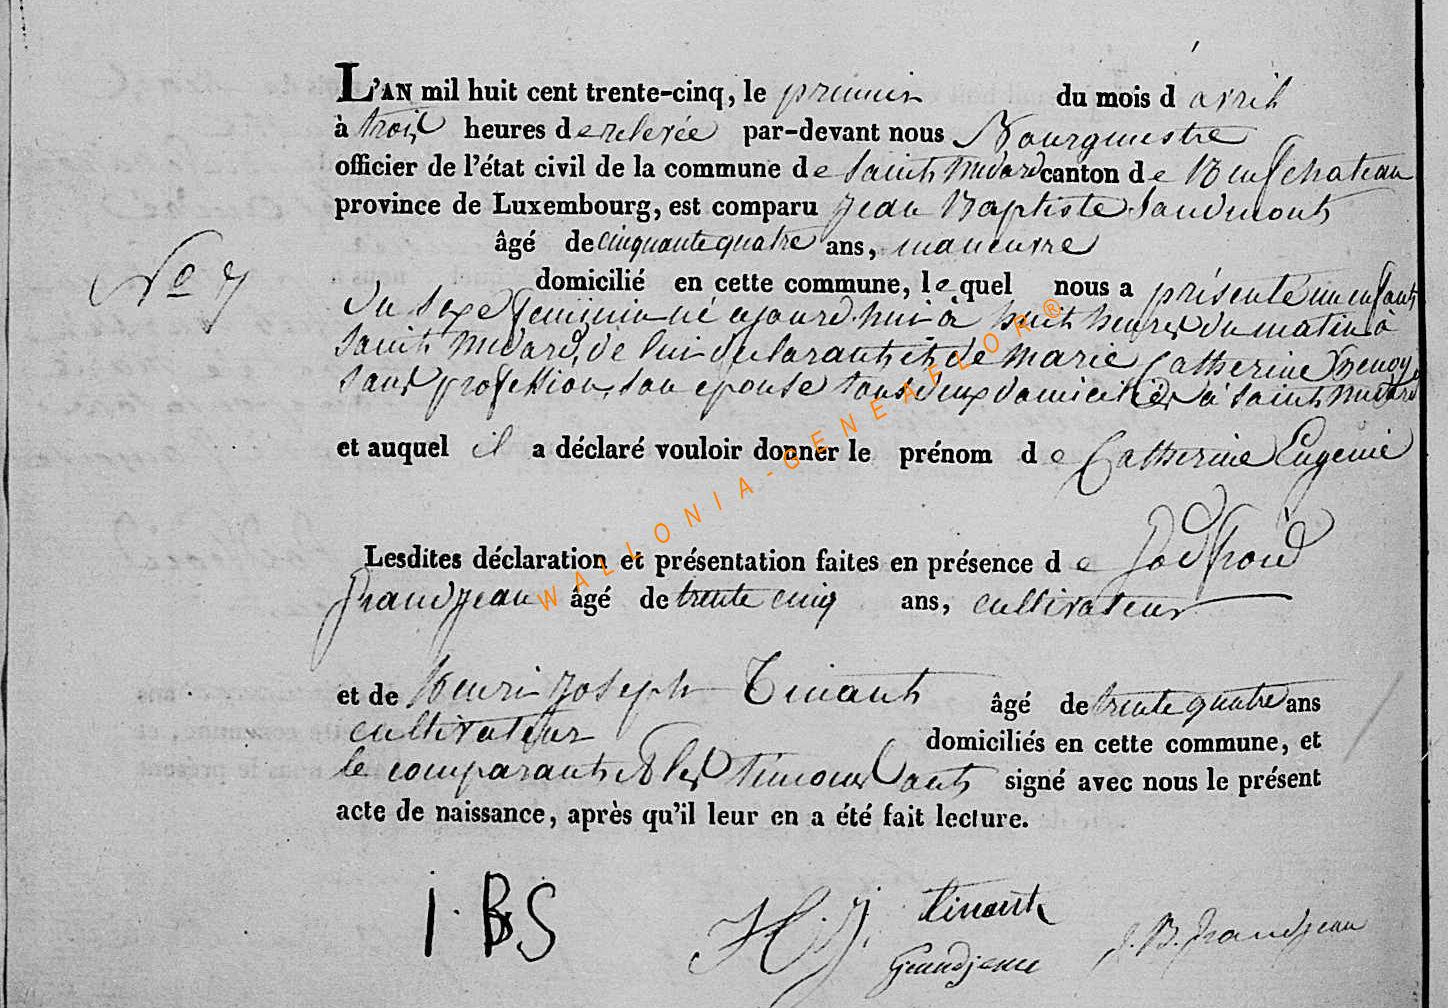 L'AN mil huit cent trente-cinq, le premier du mois d avril
à trois heures de relevée par-devant nous Bourguestre
officier de l'état civil de la commune de Saint Médard canton de Neufchateau
province de Luxembourg, est comparu Jean Baptiste
âgé de cinquante quatre ans, maneuvre
No 7
domicilié en cette commune, lequel nous a présenté un enfant
du sexe feminin né ajourd'hui à huit heures du matin à
Saint Médard, de lui declarant et de Marie Catherine
sans profession, son epouse tous deux domiciliés à Saint Médard
et auquel il a déclaré vouloir donner le prénom de Catherine Eugenie
Lesdites déclaration et présentation faites en présence de Godfroid
Grandjean âgé de trente cinq ans, cultivateur
et de Henri Joseph Tinant âgé de trente quatre ans
cultivateur domiciliés en cette commune, et
le comparant et les temoins ont signé avec nous le présent
acte de naissance, après qu'il leur en a été fait lecture.
I. BS H. J. tinant
Grandjean J. B. Grandjean
WALLONIA-GENEAFLOR®